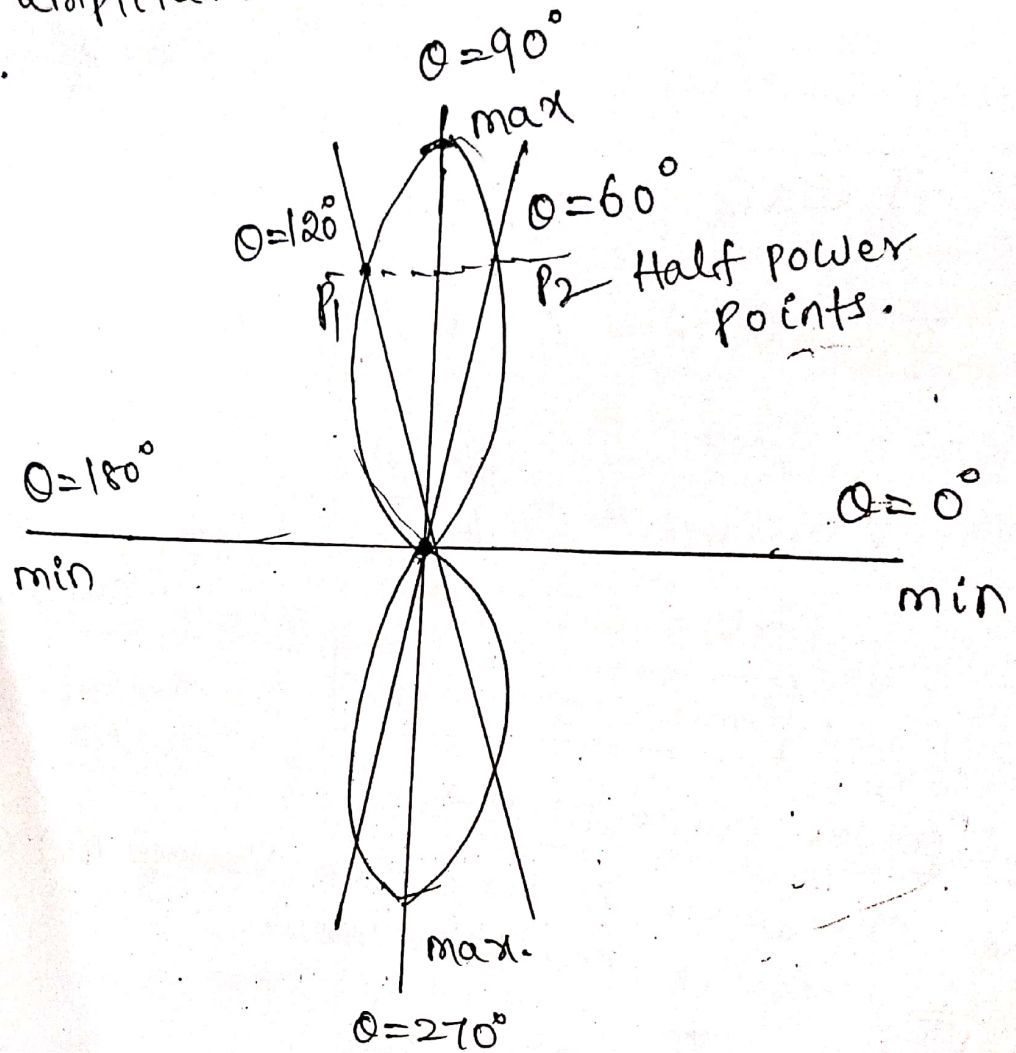 θ=90°
max
θ=120°
θ=60°
P1
P2 Half power
points.
θ=180°
θ=0°
min
min
max.
θ=270°